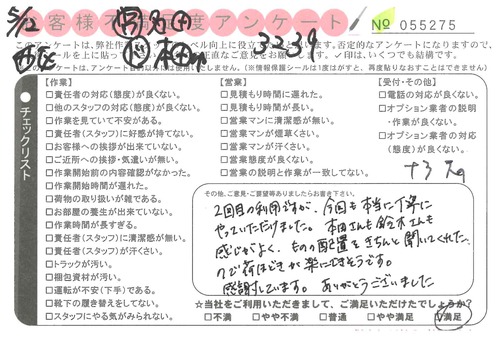 5/12
西区
お客様不満足度アンケート
No 055275
3239
このアンケートは、弊社作
ベル向上に役立て
います。否定的なアンケートになりますので、
正直なご意見をお願いします。✓印は、いくつでも結構です。
(※情報保護シールは1度はがすと、再度貼りなおすことはできません)
チェックリスト
【作業】
□責任者の対応(態度)が良くない。
□他のスタッフの対応(態度)が良くない。
□作業を見ていて不安がある。
□責任者(スタッフ)に好感が持てない。
□お客様への挨拶が出来ていない。
□ご近所への挨拶・気遣いが無い。
□作業開始前の内容確認がなかった。
□作業開始時間が遅れた。
□荷物の取り扱いが雑である。
□お部屋の養生が出来ていない。
□作業時間が長すぎる。
□責任者(スタッフ)に清潔感が無い。
□責任者(スタッフ)が汗くさい。
□トラックが汚い。
□梱包資材が汚い。
□運転が不安(下手)である。
□靴下の履き替えをしてない。
□スタッフにやる気がみられない。
【営業】
□見積もり時間に遅れた。
□見積もり時間が長い。
□営業マンに清潔感が無い。
□営業マンが煙草くさい。
□営業マンが汗くさい。
□営業態度が良くない。
□営業の説明と作業が一致してない。
【受付・その他】
□電話の対応が良くない。
□オプション業者の説明
・作業が良くない。
□オプション業者の対応
(態度)が良くない。
その他、ご意見・ご要望等ありましたらお書き下さい。
2回目の利用ですが、今回も本当に丁寧に
やっていただけました。本田さんも鈴木さんも
感じがよく、ものの配置をきちんと聞いてくれた
ので荷ほどきが楽にできそうです。
感謝しています。ありがとうございました
☆当社をご利用いただきまして、ご満足いただけたでしょうか?
□不満 □やや不満 □普通 □やや満足 ☑満足